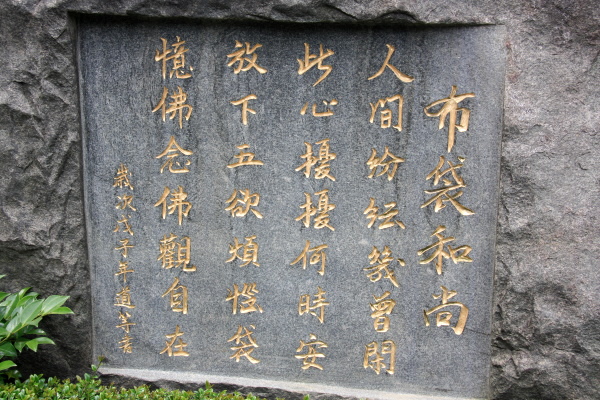 布袋和尚
人間紛紜幾曾閑
此心擾擾何時安
放下五欲煩惱袋
憶佛念佛觀自在
歲次戊子年道等書